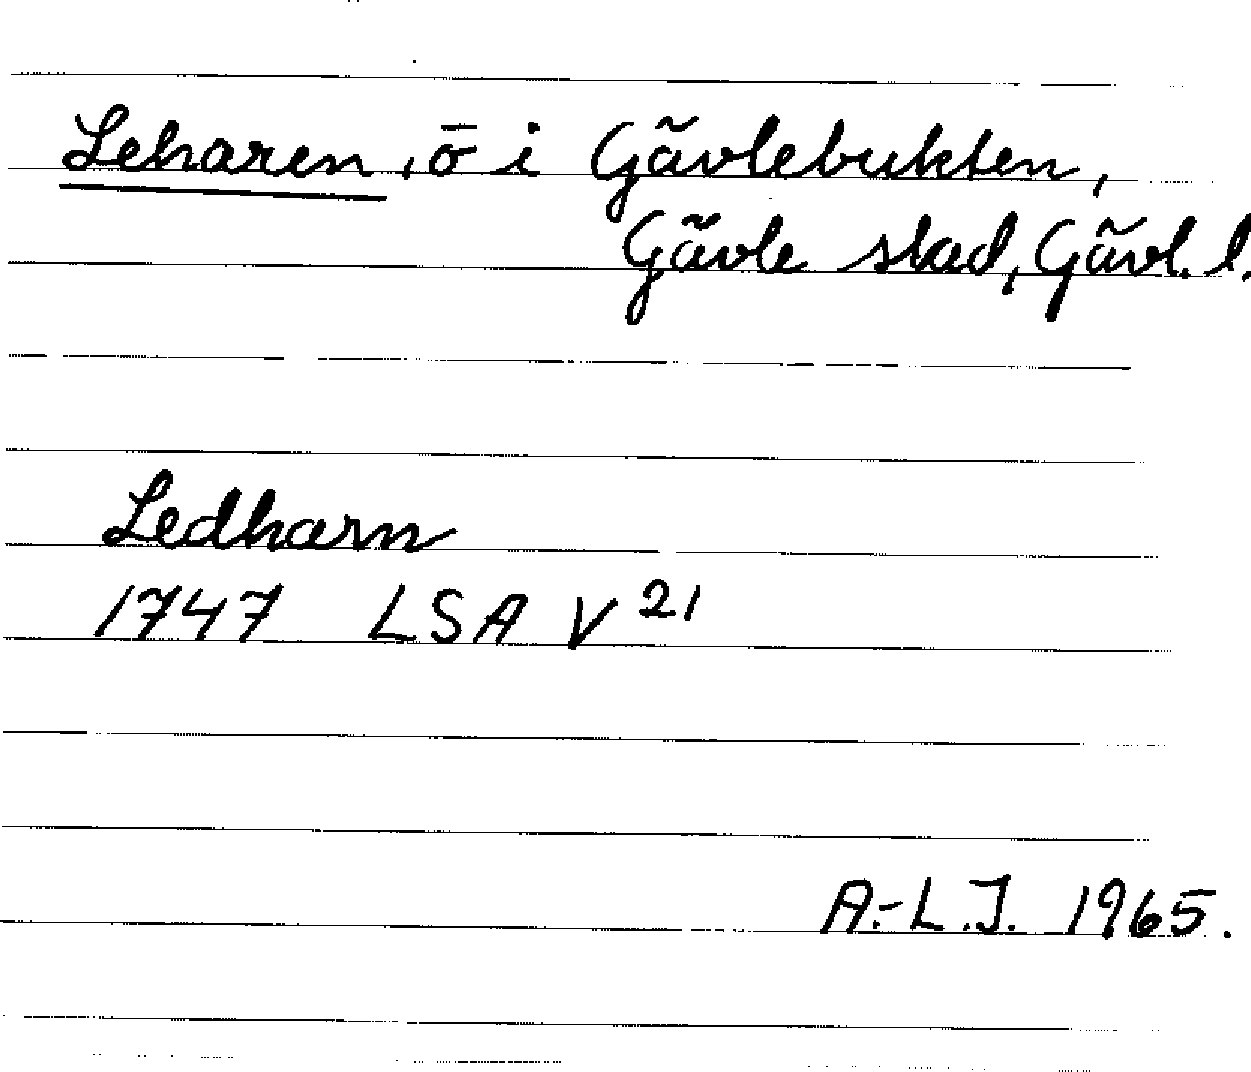 Leharen, ö i Gävlebukten,
Gävle stad, Gävl. l.
Ledharn
1747 LSA V 21
A.-L.J. 1965.